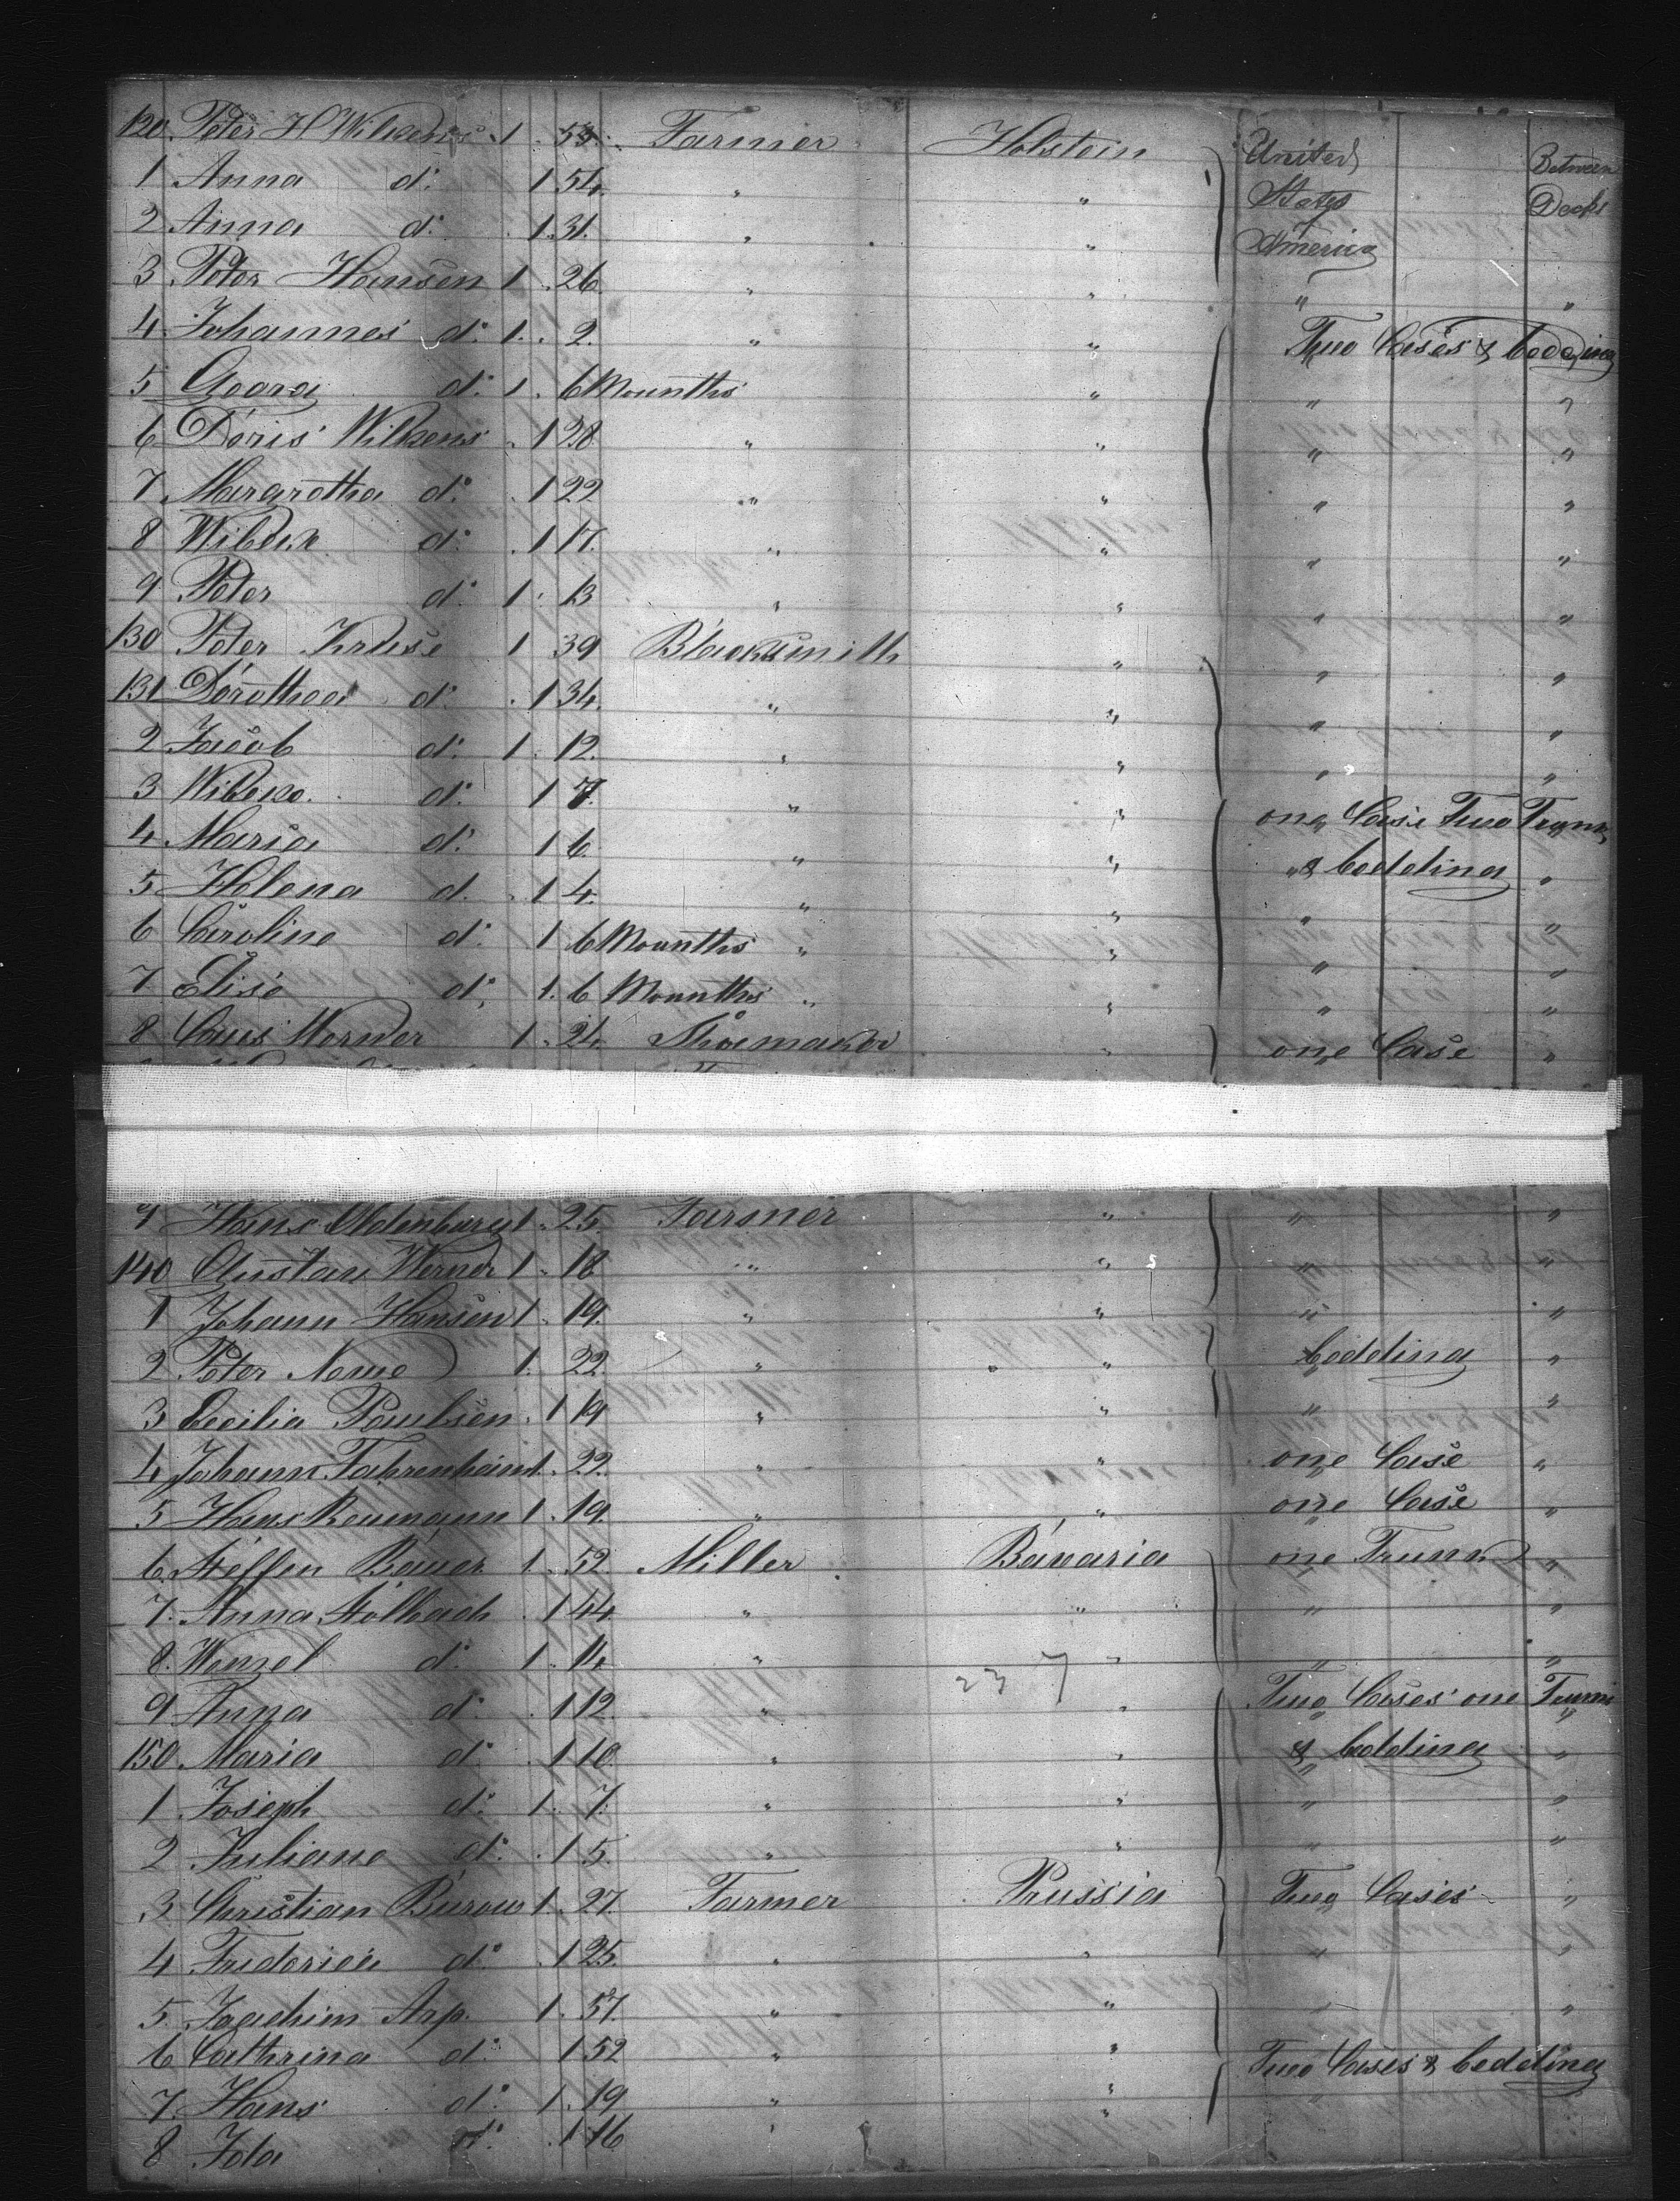 120 Peter H Wilkens 1 55 Farmer Holstein United Between
1 Anna do 1 54 " " States Decks
2 Anna do 1 31 " " America
3 Peter Hansen 1 26 " " " "
4 Johannes do 1 2 " " Two Cases & bedding
5 Georg do 1 6 Mounths " " "
6 Doris Wilkens 1 28 " " " "
7 Margretha do 1 22 " " " "
8 Wibeck do 1 17 " " " "
9 Peter do 1 13 " " " "
130 Peter Kruse 1 39 Blacksmith " " "
131 Dorothea do 1 34 " " " "
2 Jacob do 1 12 " " " "
3 Wibeke do 1 7 " " one Case Two Trunk
4 Maria do 1 6 " " & bedding "
5 Helena do 1 4 " " " "
6 Caroline do 1 6 Mounths " " " "
7 Elise do 1 6 Mounths " " " "
8 Claus Werner 1 24 Shoemaker " one Case "
9 Hans Oldenburg 1 25 Farmer " " "
140 Gustav Werner 1 18 " " " "
1 Johann Hansen 1 19 " " " "
2 Peter Neme 1 22 " " bedding "
3 Cecilia Paulsen 1 19 " " " "
4 Johann Fahrenhein 1 22 " " one Case "
5 Hans Reumann 1 19 " " one Case "
6 Steffen Bauer 1 52 Miller Bavaria one Trunk "
7 Anna Stollbach 1 44 " " " "
8 Wenzel do 1 14 " " " "
23 7
9 Anna do 1 12 " " Two Cases one Trunk
150 Maria do 1 10 " " & bedding "
1 Joseph do 1 7 " " " "
2 Juliane do 1 5 " " " "
3 Christian Burow 1 27 Farmer Prussia Two Cases "
4 Frederica do 1 25 " " " "
5 Joachim Arp 1 57 " " " "
6 Cathrina do 1 52 " " Two Cases & bedding
7 Hans do 1 19 " "
8 Ida do 1 16 " "